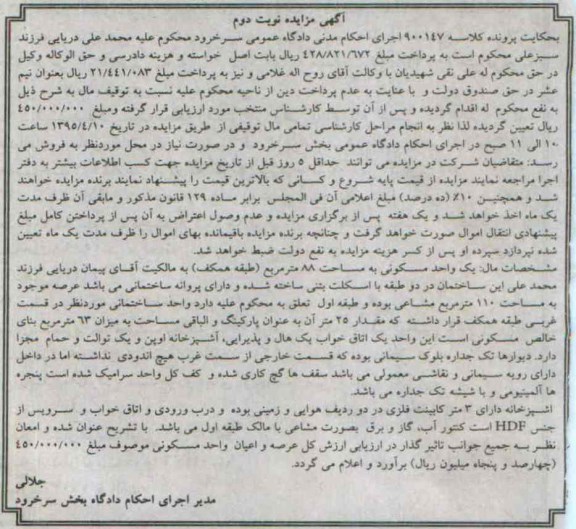 آگهی مزایده نوبت دوم
بحکایت پرونده کلاسه ۹۰۰۱۴۷ اجرای احکام مدنی دادگاه عمومی سرخرود محکوم علیه محمد علی دریایی فرزند
سبزعلی محکوم است به پرداخت مبلغ ۴۲۸/۸۲۱/۶۷۲ ریال بابت اصل خواسته و هزینه دادرسی و حق الوکاله وکیل
در حق محکوم له علی نقی شهیدیان با وکالت آقای روح اله غلامی و نیز به پرداخت مبلغ ۲۱/۴۴۱/۰۸۳ ریال بعنوان نیم
عشر در حق صندوق دولت و با عنایت به عدم پرداخت دین از ناحیه محکوم علیه نسبت به توقیف مال به شرح ذیل
به نفع محکوم له اقدام گردیده و پس از آن توسط کارشناس منتخب مورد ارزیابی قرار گرفته ومبلغ ۴۵۰/۰۰۰/۰۰۰
ریال تعیین گردیده لذا نظر به انجام مراحل کارشناسی تمامی مال توقیفی از طریق مزایده در تاریخ ۱۳۹۵/۴/۱۰ ساعت
۱۰ الی ۱۱ صبح در اجرای احکام دادگاه عمومی بخش سرخرود و در صورت نیاز در محل موردنظر به فروش می
رسد: متقاضیان شرکت در مزایده می توانند حداقل ۵ روز قبل از تاریخ مزایده جهت کسب اطلاعات بیشتر به دفتر
اجرا مراجعه نمایند مزایده از قیمت پایه شروع و کسانی که بالاترین قیمت را پیشنهاد نمایند برنده مزایده خواهند
شد و همچنین ۱۰٪ (ده درصد) مبلغ اعلامی آن فی المجلس برابر ماده ۱۲۹ قانون مذکور و مابقی آن ظرف مدت
یک ماه اخذ خواهد شد و یک هفته پس از برگزاری مزایده و عدم وصول اعتراض به آن پس از پرداختن کامل مبلغ
پیشنهادی انتقال اموال صورت خواهد گرفت و چنانچه برنده مزایده باقیمانده بهای اموال را ظرف مدت یک ماه تعیین
شده نپردازد سپرده او پس از کسر هزینه مزایده به نفع دولت ضبط خواهد شد.
مشخصات مال: یک واحد مسکونی به مساحت ۸۸ مترمربع (طبقه همکف) به مالکیت آقای پیمان دریایی فرزند
محمد علی این ساختمان در دو طبقه با اسکلت بتنی ساخته شده و دارای پروانه ساختمانی می باشد عرصه موجود
به مساحت ۱۱۰ مترمربع مشاعی بوده و طبقه اول تعلق به محکوم علیه دارد واحد ساختمانی موردنظر در قسمت
غربی طبقه همکف قرار داشته که مقدار ۲۵ متر آن به عنوان پارکینگ و الباقی مساحت به میزان ۶۳ مترمربع بنای
خالص مسکونی است این واحد یک اتاق خواب یک هال و پذیرایی، آشپزخانه اوپن و یک توالت و حمام مجزا
دارد. دیوارها تک جداره بلوک سیمانی بوده که قسمت خارجی از سمت غرب هیچ اندودی نداشته اما در داخل
دارای رویه سیمانی و نقاشی معمولی می باشد سقف ها گچ کاری شده و کف کل واحد سرامیک شده است پنجره
ها آلمینیومی و با شیشه تک جداره می باشد.
اشپزخانه دارای ۳ متر کابینت فلزی در دو ردیف هوایی و زمینی بوده و درب ورودی و اتاق خواب و سرویس از
جنس HDF است کنتور آب، گاز و برق بصورت مشاعی با مالک طبقه اول می باشد. با تشریح عنوان شده و امعان
نظر به جمیع جوانب تاثیر گذار در ارزیابی ارزش کل عرصه و اعیان واحد مسکونی موصوف مبلغ ۴۵۰/۰۰۰/۰۰۰
(چهارصد و پنجاه میلیون ریال) برآورد و اعلام می گردد.
جلالی
مدیر اجرای احکام دادگاه بخش سرخرود